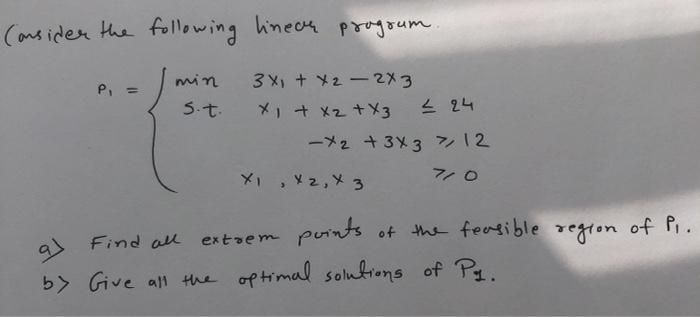 Consider the following linear program.
P₁ = { min 3x₁ + x₂ - 2x₃
s.t. x₁ + x₂ + x₃ ≤ 24
-x₂ + 3x₃ ≥ 12
x₁, x₂, x₃ ≥ 0
a> Find all extrem points of the feasible region of P₁.
b> Give all the optimal solutions of P₁.